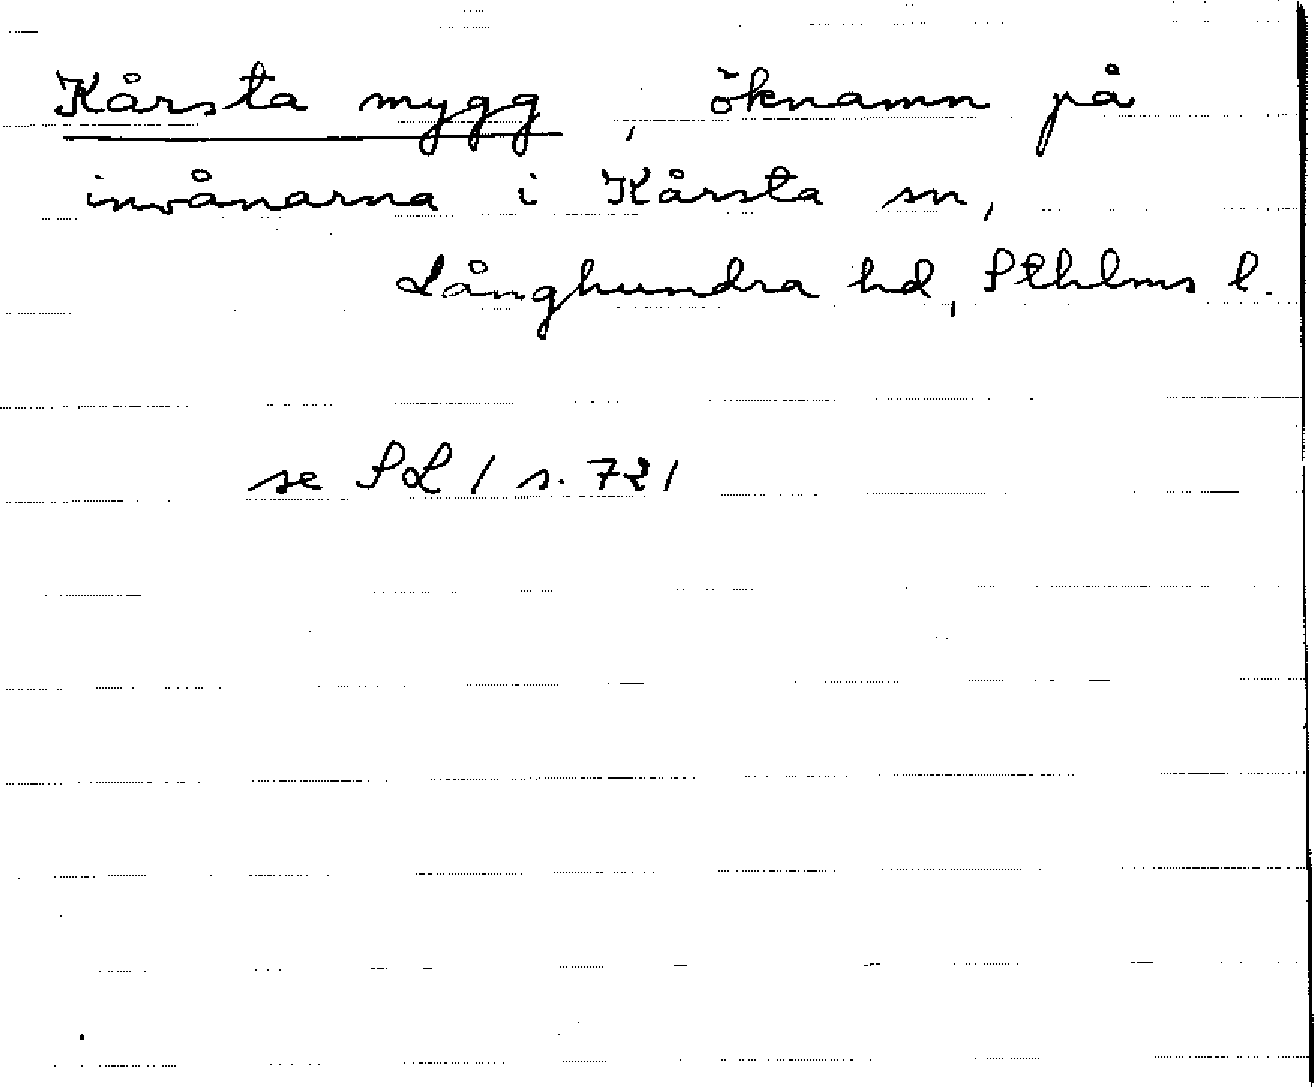 Kårsta mygg, öknamn på
invånarna i Kårsta sn,
Långhundra hd, Sthlms l.
se SL 1 s. 721